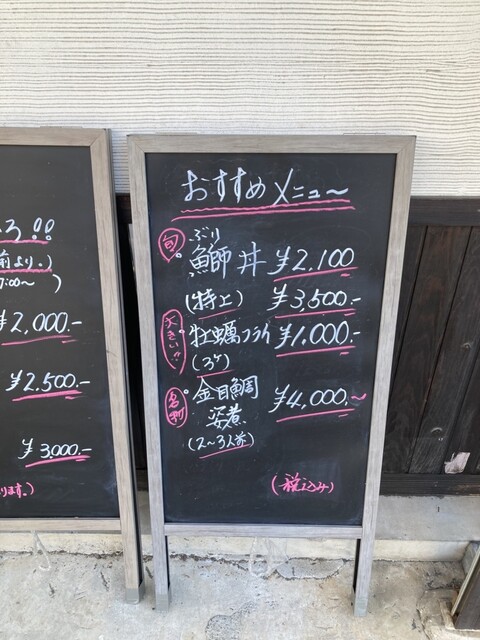 ろ!!
前より。)
7:00～ )
¥2,000.-
¥2,500.-
¥3,000.-
ります。)
おすすめメニュ～
旬 ぶり
鰤丼 ¥2,100
(特上) ¥3,500.-
大きい!! 牡蠣フライ ¥1,000.-
(3ケ)
名物 金目鯛 ¥4,000.～
姿煮
(2～3人前)
(税込み)